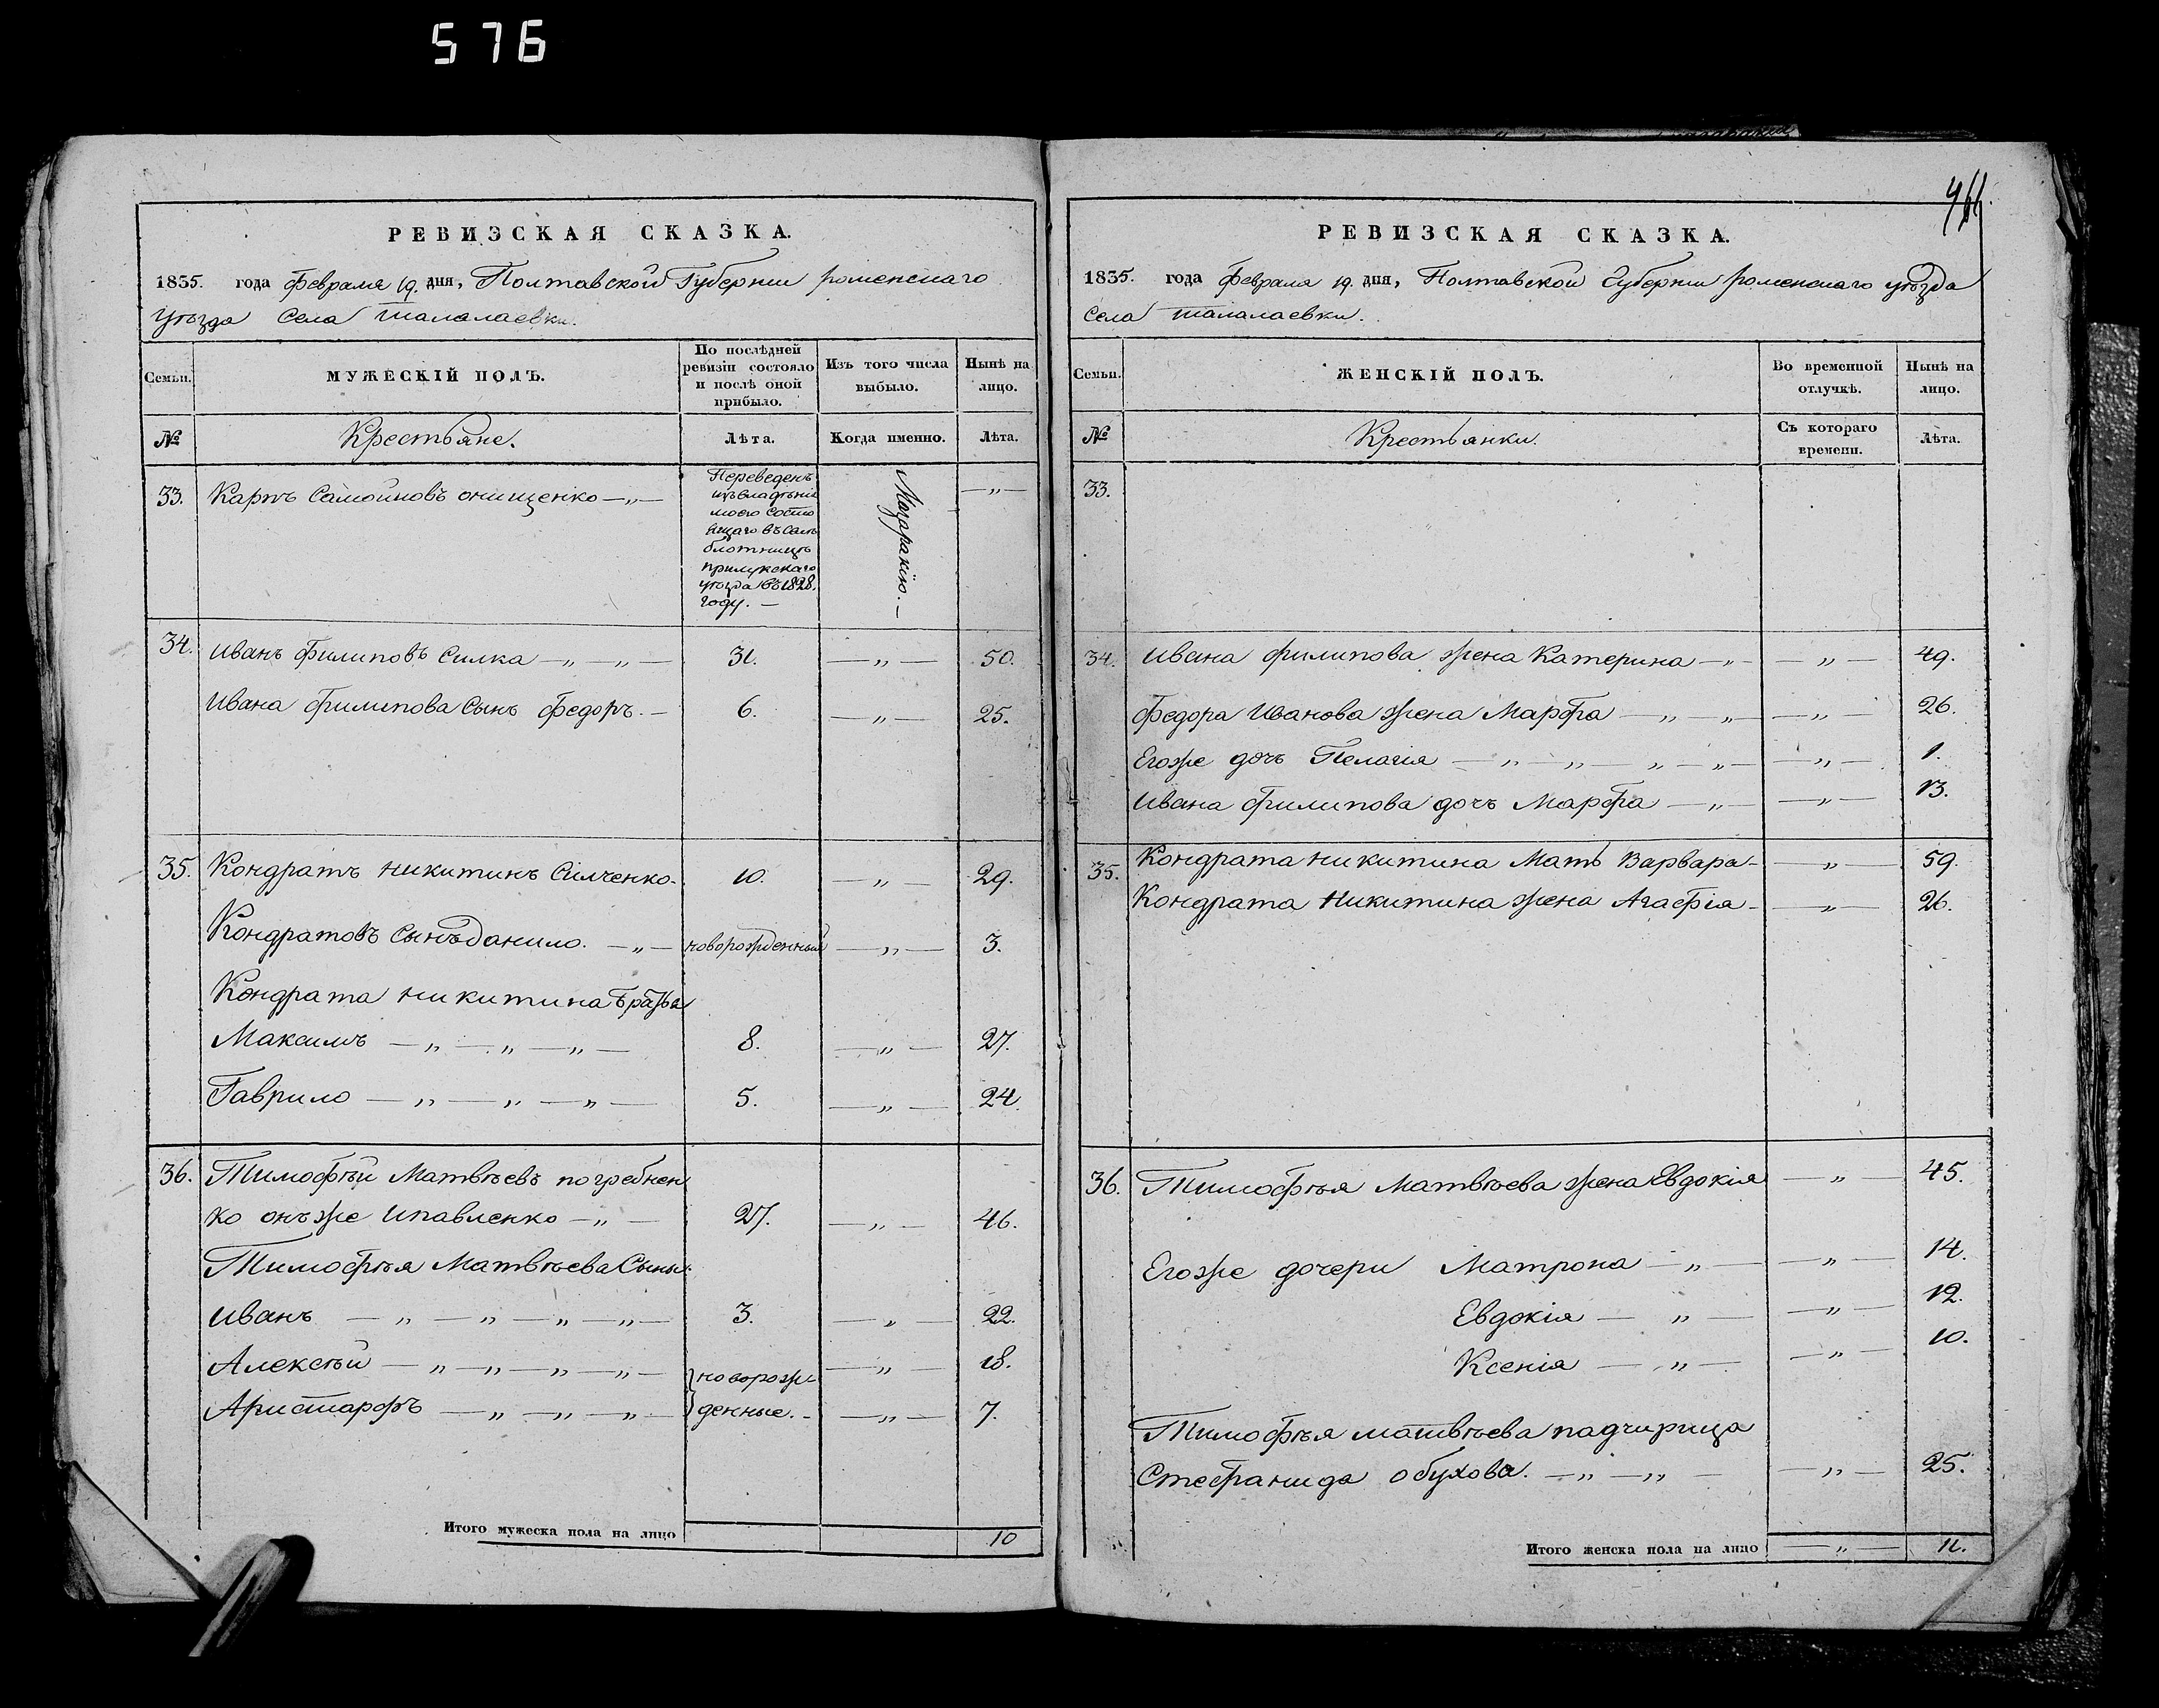 576
РЕВИЗСКАЯ СКАЗКА.
1835. года Февраля 19. дня, Полтавской Губернии роменскаго
уѣзда Села талалаевки.
Семьи.
МУЖЕСКІЙ ПОЛЪ.
По послѣдней ревизіи состояло и послѣ оной прибыло.
Изъ того числа выбыло.
Нынѣ на лицо.
№ Крестьяне. Лѣта. Когда именно. Лѣта.
33. Карпъ Самойловъ онищенко —„— —„—
Переведенъ
изъ владѣнія
моего состо
ящаго въ селѣ
блотницѣ
прилукскаго
уѣзда въ 1828.
году. —
34. Иванъ Филиповъ Силка —„—„— 31. —„— 50.
Ивана Филипова Сынъ Федоръ.— 6. —„— 25.
35. Кондратъ Никитинъ Силченко- 10. —„— 29.
Кондратовъ Сынъ данило. —„— новорожденный —„— 3.
Кондрата Никитина братья
Максимъ —„—„—„— 8. —„— 27.
Гаврило —„—„—„— 5. —„— 24.
36. Тимофѣй Матвѣевъ погребнен
ко онъ же ипавленко —„— 27. —„— 46.
Тимофѣя Матвѣева Сыны:
Иванъ —„—„—„—„— 3. —„— 22.
Алексѣй —„—„—„—„— новорож- —„— 18.
Аристарфъ —„—„—„— денные.- —„— 7.
Итого мужеска пола на лицо 10
466.
РЕВИЗСКАЯ СКАЗКА.
1835. года Февраля 19. дня, Полтавской Губернии роменскаго уѣзда
Села талалаевки.
Семьи.
ЖЕНСКІЙ ПОЛЪ.
Во временной отлучкѣ.
Нынѣ на лицо.
№ Крестьянки. Съ котораго времени. Лѣта.
33.
34. Ивана филипова жена Катерина —„— —„— 49.
Федора Иванова жена Марфа —„—„— —„— 26.
Егоже дочь Пелагія —„—„—„—„— —„— 1.
Ивана филипова дочь Марфа —„— —„— 13.
35. Кондрата никитина Мать Варвара- —„— 59.
Кондрата Никитина жена Агафія- —„— 26.
36. Тимофѣя Матвѣева жена Евдокія —„— 45.
Егоже дочери Матрона —„— —„— 14.
Евдокія —„— —„— 12.
Ксенія —„— —„— 10.
Тимофѣя матвѣева падчирица
Стефанида обухова. —„—„— —„— 25.
Итого женска пола на лицо —„— 11.